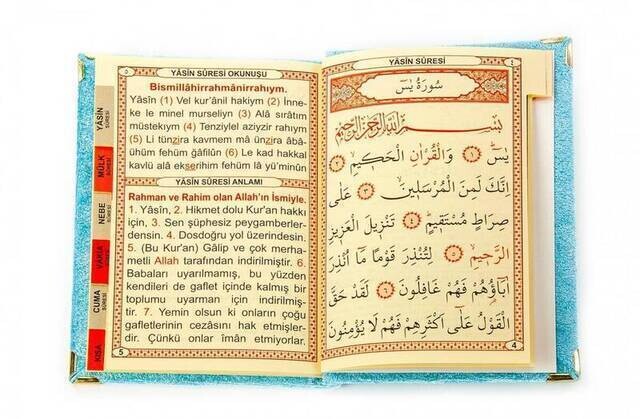 YÂSÎN SÛRESİ
٤
سُورَةُ يٰسٓ
بِسْمِ اللّٰهِ الرَّحْمٰنِ الرَّحِيمِ
يٰسٓ ﴿١﴾ وَالْقُرْاٰنِ الْحَكِيمِ ﴿٢﴾
اِنَّكَ لَمِنَ الْمُرْسَلِينَ ﴿٣﴾ عَلٰى
صِرَاطٍ مُسْتَقِيمٍ ﴿٤﴾ تَنْزِيلَ الْعَزِيزِ
الرَّحِيمِ ﴿٥﴾ لِتُنْذِرَ قَوْمًا مَٓا اُنْذِرَ
اٰبَٓاؤُ۬هُمْ فَهُمْ غَافِلُونَ ﴿٦﴾ لَقَدْ حَقَّ
الْقَوْلُ عَلٰٓى اَكْثَرِهِمْ فَهُمْ لَا يُؤْمِنُونَ
4
٥
YÂSÎN SÛRESİ OKUNUŞU
Bismillâhirrahmânirrahıym.
Yâsîn (1) Vel kur'ânil hakiym (2) İnne-
ke le minel murseliyn (3) Alâ sıratım
müstekıym (4) Tenziylel aziyzir rahıym
(5) Li tünzira kavmem mâ ünzira âbâ-
ühüm fehüm ğâfilûn (6) Le kad hakkal
kavlü alâ ekserihim fehüm lâ yü'minûn
YÂSÎN SÛRESİ ANLAMI
Rahman ve Rahim olan Allah'ın İsmiyle.
1. Yâsîn, 2. Hikmet dolu Kur'an hakkı
için, 3. Sen şüphesiz peygamberler-
densin. 4. Dosdoğru yol üzerindesin.
5. (Bu Kur'an) Gâlip ve çok merha-
metli Allah tarafından indirilmiştir. 6.
Babaları uyarılmamış, bu yüzden
kendileri de gaflet içinde kalmış bir
toplumu uyarman için indirilmiş-
tir. 7. Yemin olsun ki onların çoğu
gafletlerinin cezâsını hak etmişler-
dir. Çünkü onlar îmân etmiyorlar.
5
YÂSÎN
SÛRESİ
MÜLK
SÛRESİ
NEBE
SÛRESİ
VAKIA
SÛRESİ
CUMA
SÛRESİ
KISA